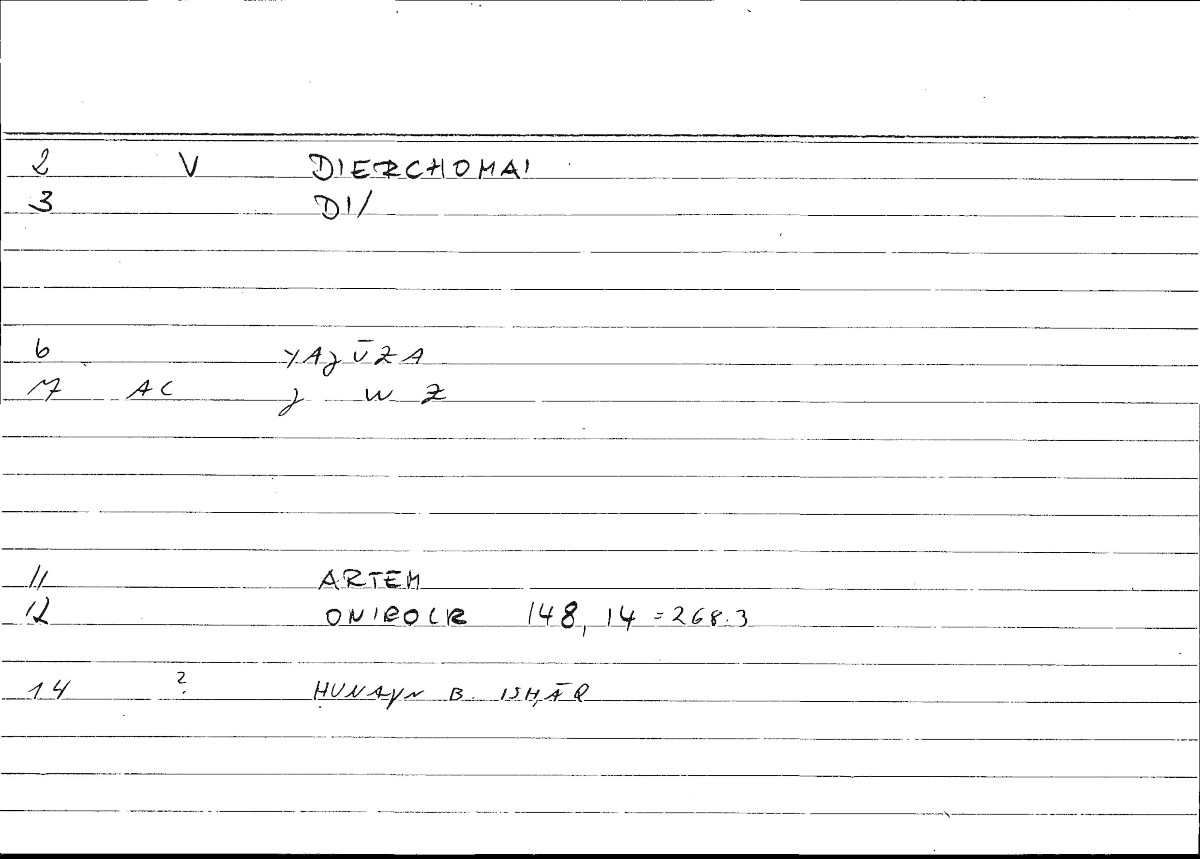 2 V DIERCHOMAI
3 DI/
6 YAJŪZA
7 AC J W Z
11 ARTEM
12 ONIROCR 148, 14 = 268.3
14 ? ḤUNAYN B. ISḤĀQ